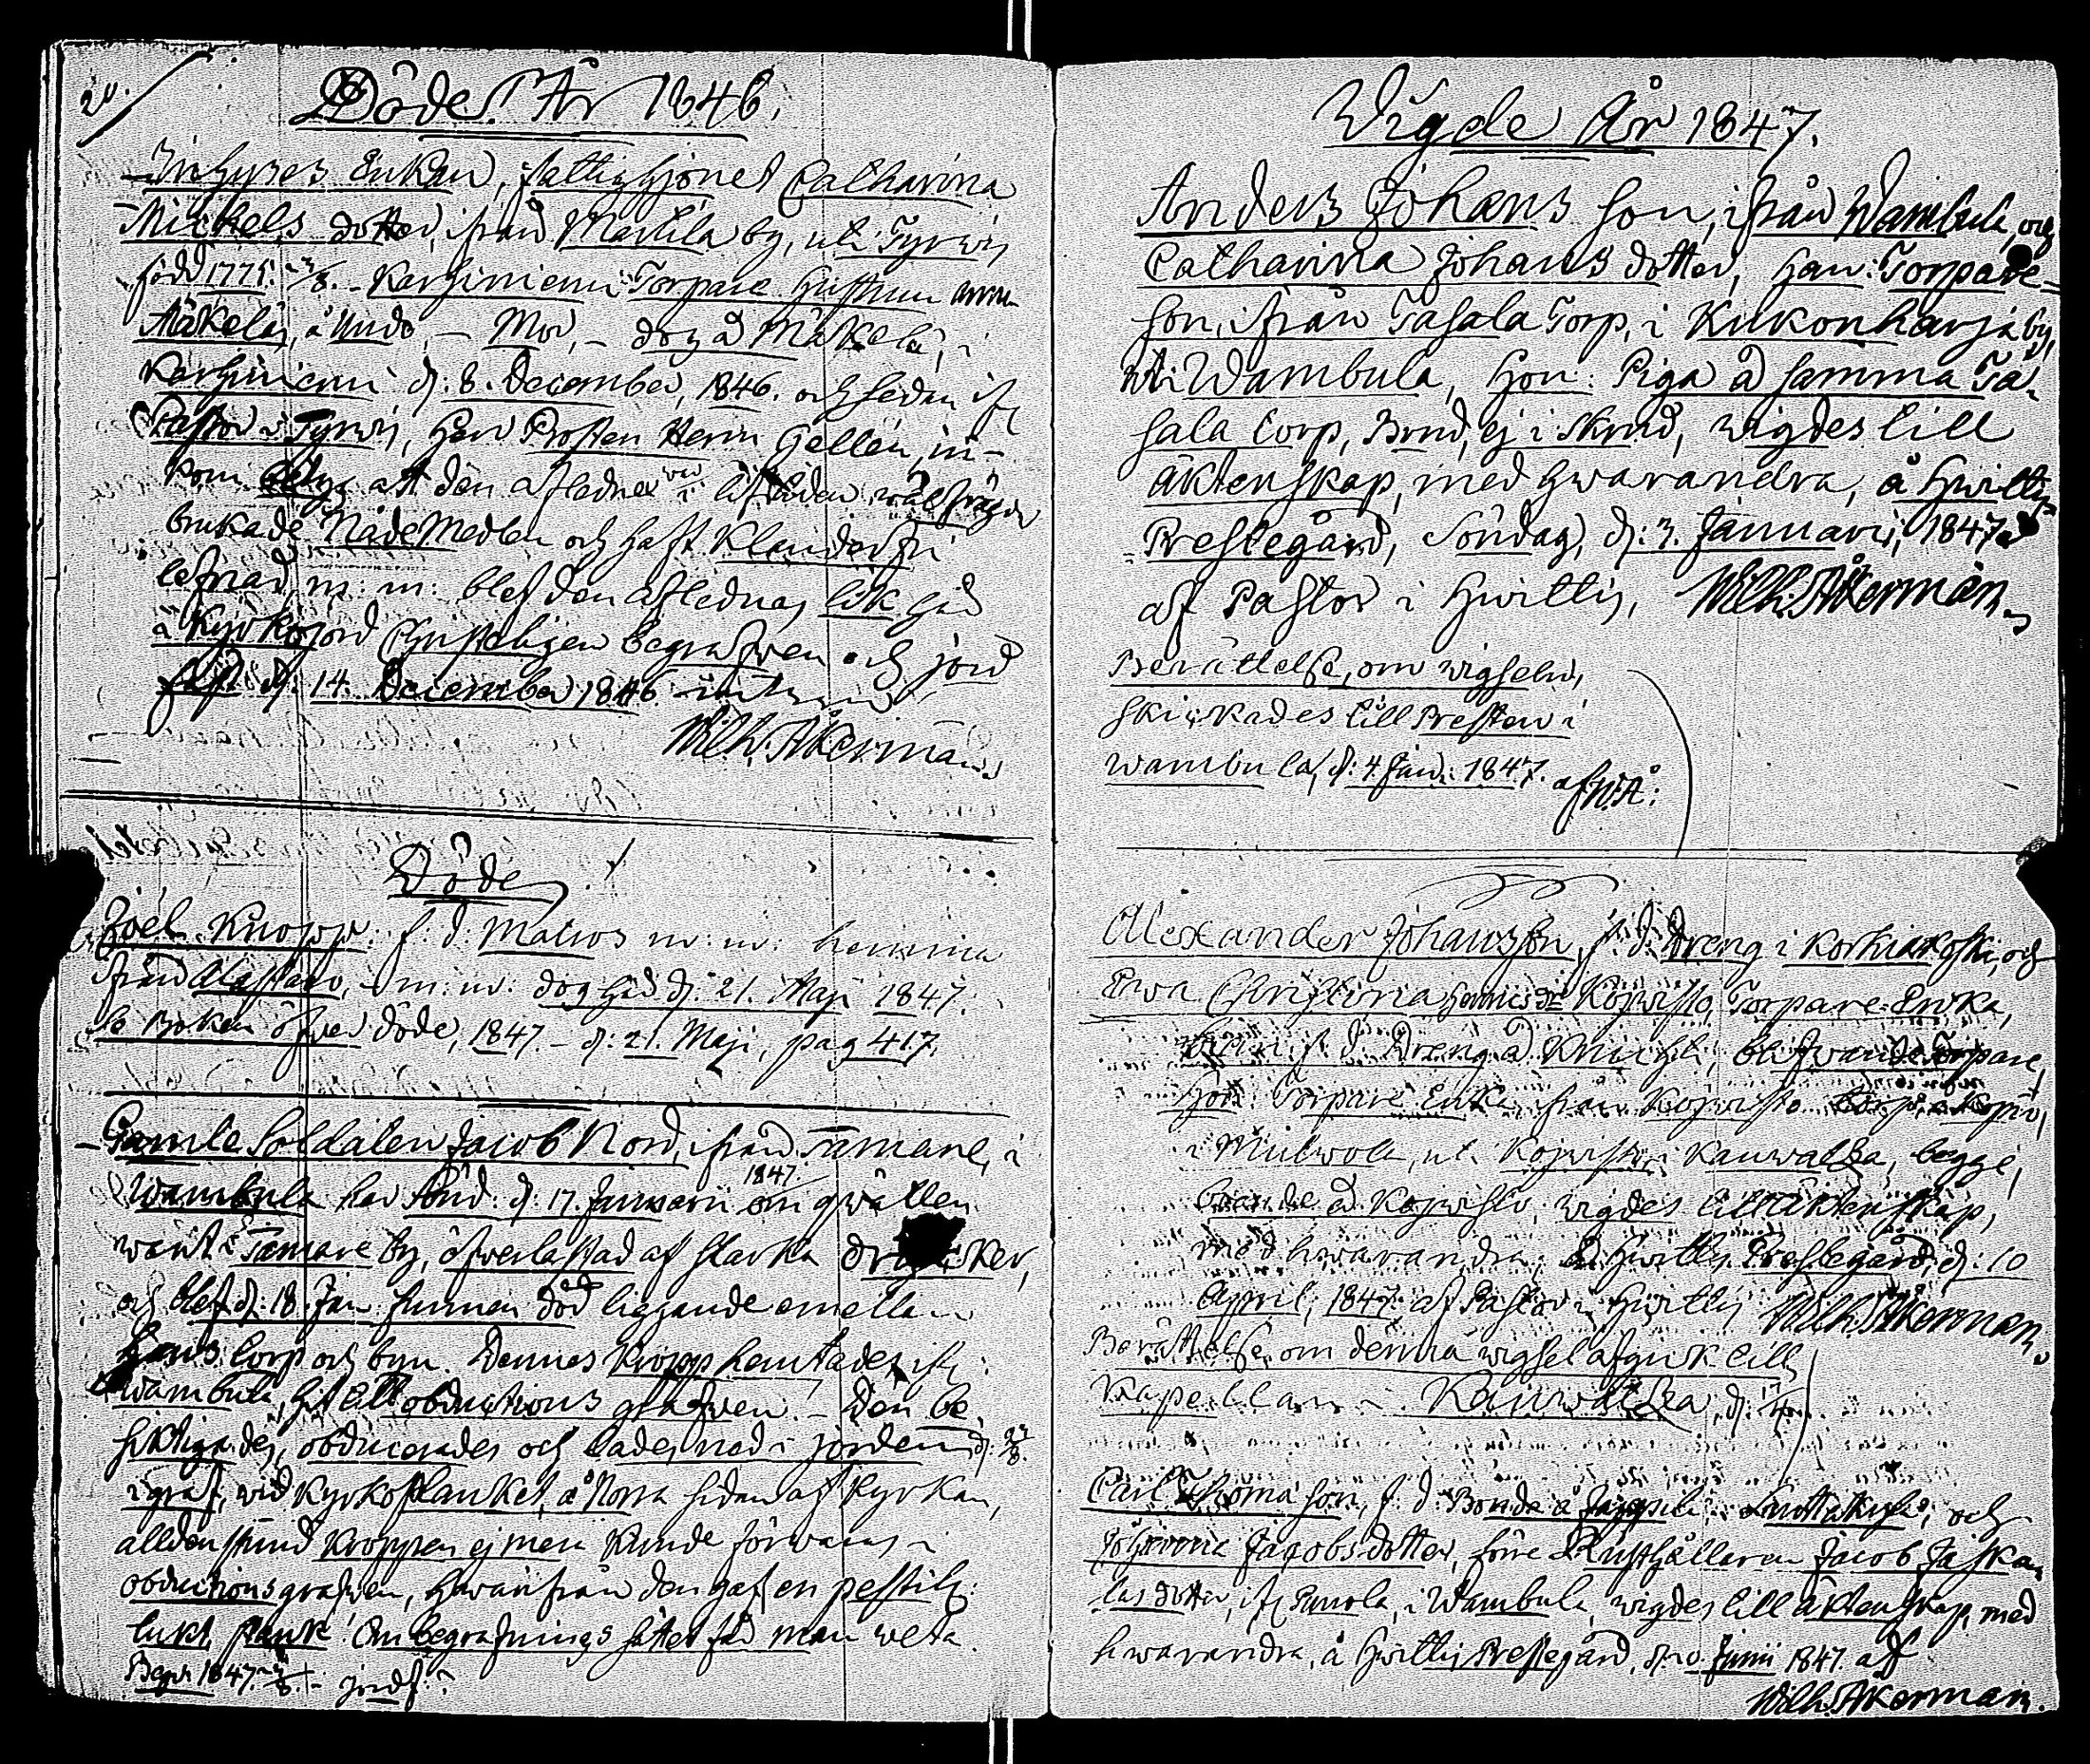 20.
Döde. År 1846.
Inhyses Enkan, fattighjonet Catharina
Mickels dotter, ifrån Marttila by, uti Tyrwis
född 1775. Karhiniemi Torpare Hustrun
Mäkelä, å Undo, Mor, dog å Mäkelä, i
Karhiniemi d: 8. December, 1846. och sedan ifr
Pastor i Tyrwis, Herr Prosten Herm Gellén, in-
kom betyg att den aflidna war i lifstiden wälfrägdad
brukade Nådemedlen och haft klanderfri
lefnad m: m: blef den aflidnas lik här
å Kyrkojord Christeligen begrafwen och jord
d: 14. December 1846.
Wilh. Åkerman.
Döde.
Joel Knopp. f: d: Matros m: m: hemma
från Alastaro, m: m: dog här d: 21. Maji 1847.
Se Boken öfwer döde, 1847 - d: 21. Maji, pag 417.
Gamle Soldaten Jacob Nord, ifrån Tamare, i
Wambula har Sönd: d: 17. Januarii 1847. om qwällen
warit i Tamare by, öfwerlastad af starka drycker,
och blef d: 18. Jan funnen död liggande emellan
hans torp och byn. Dennes kropp hemtades ifr:
Wambula, hit till obductions grafwen. - Den be
siktigades, obducerades och lades ned i jorden
i graf, wid Kyrkoplanket, å Norra sidan af Kyrkan,
alldenstund kroppen ej mera kunde förwaras i
obductionsgrafwen, hwarifrån den gaf en pestile:
lukt, stank! Om begrafnings sättet får man weta.
Begr. 1847. jordf:?
Wigde År 1847.
Anders Johans Son, ifrån Wambula, och
Catharina Johans dotter, Han: Torpare-
son, ifrån Tasala Torp, i Kukonharja by,
uti Wambula, Hon: Piga å samma Ta-
sala torp, Brud, ej i skrud, wigdes till
äktenskap, med hwarandra, å Hwittis
Prestegård, Söndag, d: 3. Januari, 1847.
af Pastor i Hwittis, Wilh: Åkerman.
Berättelse, om wigseln,
skickades till Presten i
Wambula, d: 4. Jan: 1847. af W:Å:
Alexander Johansson, f: d: Dreng i Korkiakoski, och
Ewa Christina Koiwisto, Torpare Enka,
f. d. Dreng å blifwande Torpare,
Hon: Torpare Enka, från Koiwisto
Koiwisto, i Kauwatsa, begge,
boende å Koiwisto, wigdes till äktenskap,
med hwarandra, å Hwittis Prestegård, d: 10
April, 1847. af Pastor i Hwittis Wilh. Åkerman.
Berättelse, om denna wigsel afgick till
Kapellan i Kauwatsa, d:
Carl Thoma son, f. d. Bonde å och
Johanna Jacobs dotter, förre Rusthållaren Jacob
las dotter, ifr Punola, i Wambula, wigdes till äktenskap, med
hwarandra, å Hwittis Prestegård, Junii 1847. af
Wilh. Åkerman.